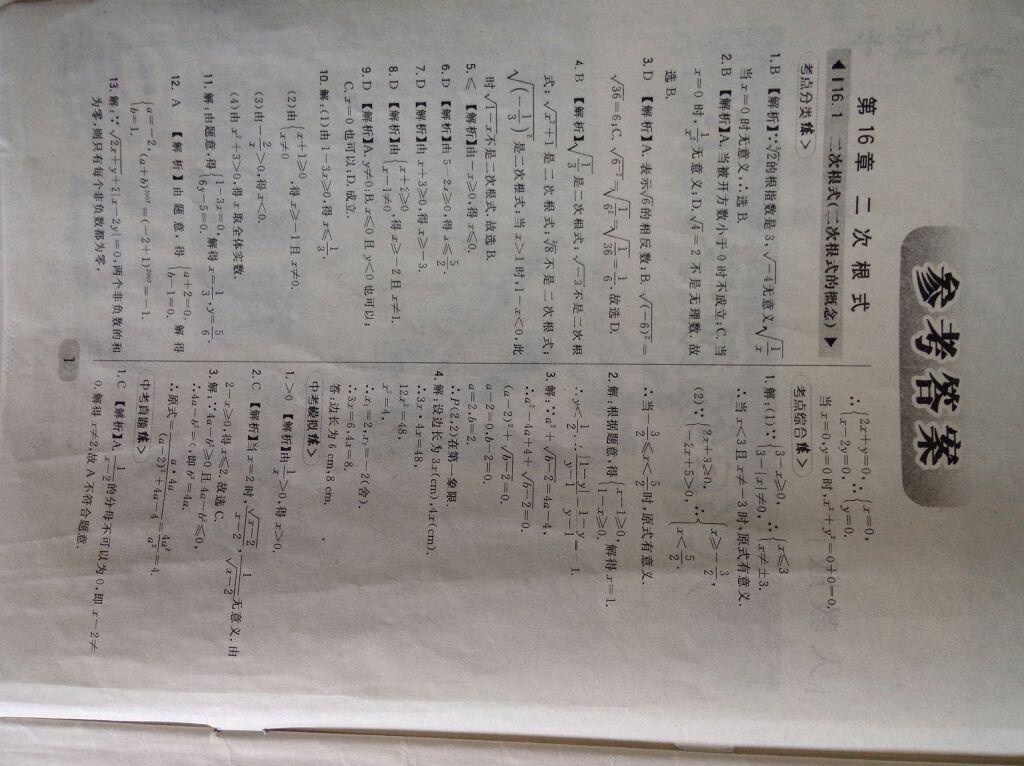 参考答案
第16章 二次根式
◀116.1 二次根式(二次根式的概念)▶
考点分类练>
1. B 【解析】∵∛2的根指数是3,√-4无意义,√(1/x)
当x=0时无意义,∴选B.
2. B 【解析】A.当被开方数小于0时不成立;C.当
x=0时,1/x²无意义;D.√4=2不是无理数,故
选B.
3. D 【解析】A.表示√6的相反数;B.√(-6)²=
√36=6;C.√6⁻²=√(1/6²)=√(1/36)=1/6.故选D.
4. B 【解析】√(1/3)是二次根式;√-3不是二次根
式;√(x²+1)是二次根式;∛8不是二次根式;
√((-1/3)²)是二次根式;当x>1时,1-x<0,此
时√(1-x)不是二次根式.故选B.
5. ≤ 【解析】由-x≥0,得x≤0.
6. D 【解析】由5-2x≥0,得x≤5/2.
7. D 【解析】由x+3≥0,得x≥-3.
8. D 【解析】由{x+2≥0 x-1≠0,得x≥-2且x≠1.
9. D 【解析】A.y≠0;B.x≤0且y<0也可以;
C.x=0也可以;D.成立.
10. 解:(1)由1-3x≥0,得x≤1/3.
(2)由{x+1≥0 x≠0,得x≥-1且x≠0.
(3)由-2/x>0,得x<0.
(4)由x²+3>0,得x取全体实数.
11. 解:由题意,得{1-3x=0, 6y-5=0.解得x=1/3,y=5/6.
12. A 【解析】由题意,得{a+2=0, b-1=0.解得
{a=-2, b=1.(a+b)²⁰⁰⁷=(-2+1)²⁰⁰⁷=-1.
13. 解:∵√(2x+y)+2|x-2y|=0,两个非负数的和
为零,则只有每个非负数都为零,
∴{2x+y=0, x-2y=0,∴{x=0, y=0.
当x=0,y=0时,x²+y²=0+0=0.
考点综合练>
1. 解:(1)∵{3-x≥0, 3-|x|≠0,∴{x≤3 x≠±3.
∴当x<3且x≠-3时,原式有意义.
(2)∵{2x+3≥0, -2x+5>0,∴{x≥-3/2, x<5/2.
∴当-3/2≤x<5/2时,原式有意义.
2. 解:根据题意,得{x-1≥0, 1-x≥0.解得x=1.
∴y<1/2.∴|1-y|/(y-1)=(1-y)/(y-1)=-1.
3. 解:∵a²+√(b-2)=4a-4,
∴a²-4a+4+√(b-2)=0.
(a-2)²+√(b-2)=0.
a-2=0,b-2=0.
a=2,b=2.
∴P(2,2)在第一象限.
4. 解:设边长为3x(cm),4x(cm).
∴3x·4x=48,
12x²=48,
x²=4,
∴x₁=2,x₂=-2(舍).
∴3x=6,4x=8.
答:边长为6 cm,8 cm.
中考模拟练>
1. >0 【解析】由1/x>0,得x>0.
2. C 【解析】当x=2时,√(x-2)/(x-2),1/√(x-2)无意义.由
2-x≥0,得x≤2.故选C.
3. 解:∵4a-b²≥0且4a-b²≤0,
∴4a-b²=0,即b²=4a.
∴原式=a·4a/((a-2)²+4a-4)=4a²/a²=4.
中考真题练>
1. C 【解析】A.1/(x-2)的分母不可以为0,即x-2≠
0,解得x≠2,故A不符合题意.
1